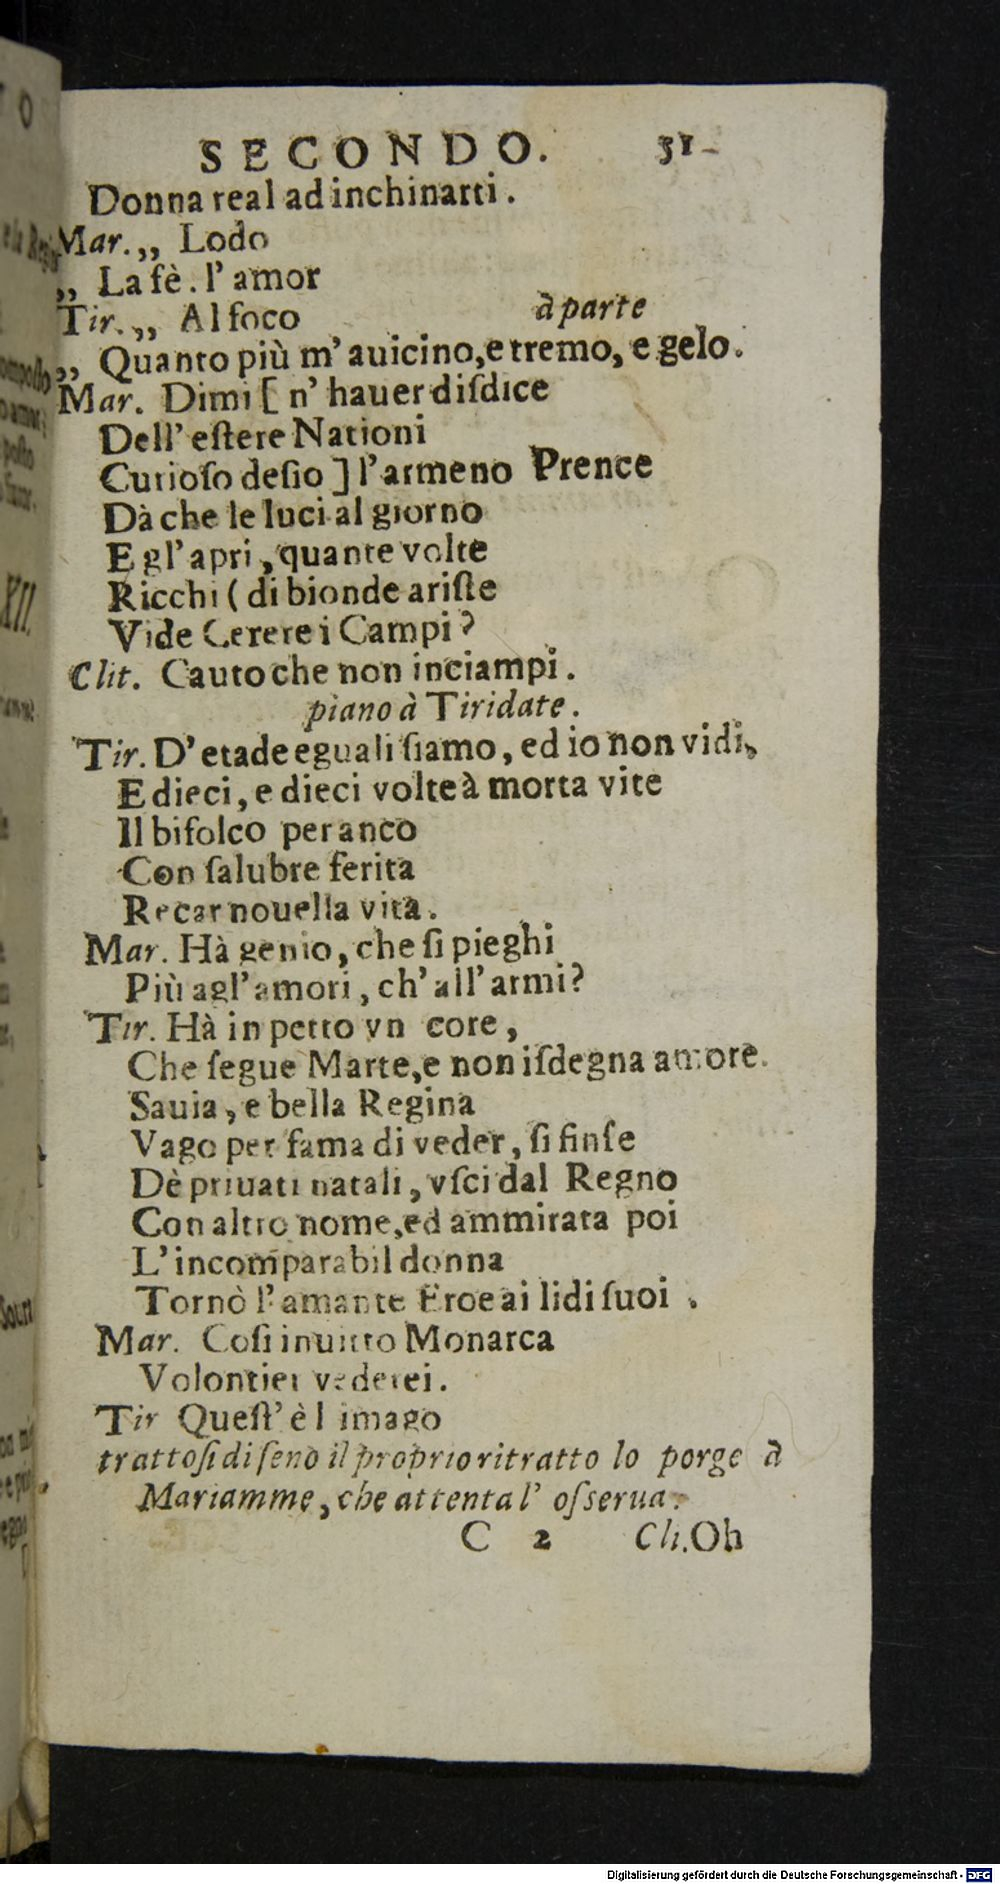 SECONDO. 51
Donna real ad inchinarti.
Mar.,, Lodo
,, La fè. l' amor
Tir.,, Al foco à parte
,, Quanto più m' auicino, e tremo, e gelo.
Mar. Dimi [ n' hauer diſdice
Dell' eſtere Nationi
Curioſo deſio ] l' armeno Prence
Dà che le luci al giorno
E gl' apri, quante volte
Ricchi ( di bionde ariſte
Vide Cerere i Campi?
Clit. Cauto che non inciampi.
piano à Tiridate.
Tir. D' etade eguali ſiamo, ed io non vidi,
E dieci, e dieci volte à morta vite
Il bifolco per anco
Con ſalubre ferita
Recar nouella vita.
Mar. Hà genio, che ſi pieghi
Più agl' amori, ch' all' armi?
Tir. Hà in petto vn core,
Che ſegue Marte, e non iſdegna amore.
Sauia, e bella Regina
Vago per fama di veder, ſi finſe
Dè priuati natali, vſci dal Regno
Con altro nome, ed ammirata poi
L' incomparabil donna
Tornò l' amante Eroe ai lidi ſuoi.
Mar. Coſi inuitto Monarca
Volontier vederei.
Tir Queſt' è l imago
trattoſi di ſeno il proprio ritratto lo porge à
Mariamme, che attenta l' oſserua.
C 2 Cli. Oh
Digitalisierung gefördert durch die Deutsche Forschungsgemeinschaft - DFG